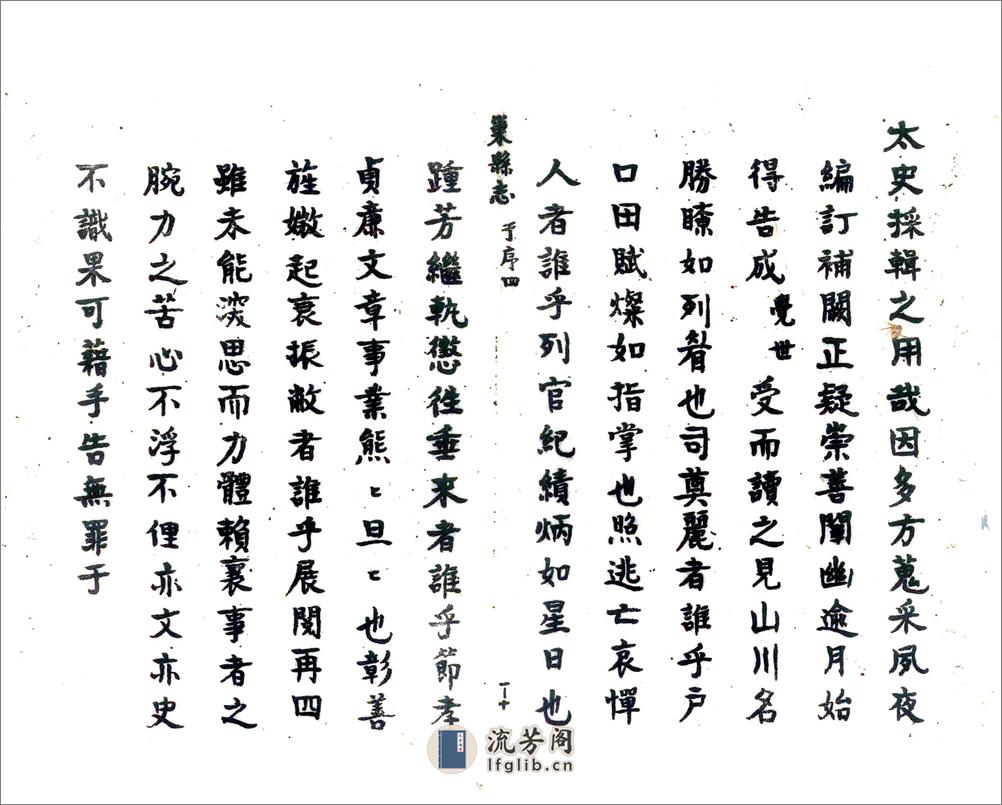 太史採輯之用哉因多方蒐采夙夜
編訂補闕正疑崇善闡幽逾月始
得告成覺世受而讀之見山川名
勝瞭如列眉也司奠麗者誰乎戸
口田賦燦如指掌也照逃亡哀憚
人者誰乎列官紀績炳如星日也
巢縣志 于序四
十一
踵芳繼軌懲往垂来者誰乎節孝
貞亷文章事業熊〻旦〻也彰善
旌媺起衰振敝者誰乎展閱再四
雖未能淡思而力體賴襄事者之
腕力之苦心不浮不俚亦文亦史
不識果可藉手告無罪于
流芳阁
lfglib.cn